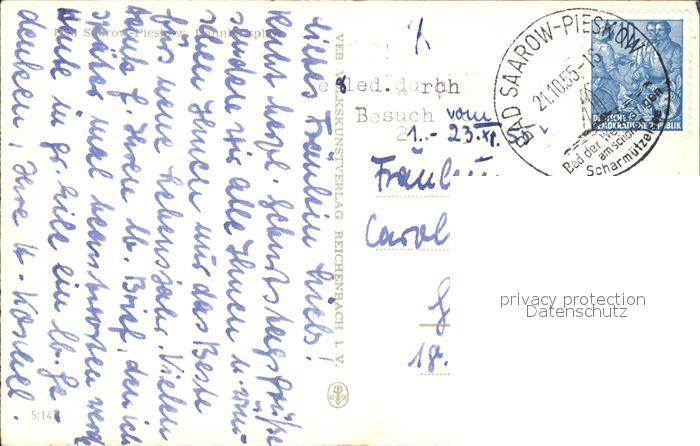 Bad Saarow-Pieskow
Liebes Fräulein Lieb!
Recht herzl. Geburtstagsgrüße
senden wir alle Ihnen u. wün-
schen Ihnen nur das Beste
fürs neue Lebensjahr. Vielen
Dank f. Ihren lb. Brief, den ich
später mal beantworten werde
Heute in gr. Eile ein lb. Ge-
denken, Ihre
5/14
VEB VOLKSKUNSTVERLAG REICHENBACH I. V.
BAD SAAROW-PIESKOW
21.10.55-16
Bad der Werktätigen
am schönen
Scharmützelsee
DEUTSCHE
DEMOKRATISCHE REPUBLIK
led. durch
Besuch vom
1.-23.
Fräulein
Carol
18.
privacy protection
Datenschutz